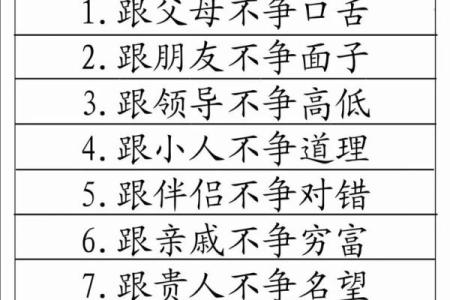 1.跟父母不争口舌
2.跟朋友不争面子
3.跟领导不争高低
4.跟小人不争道理
5.跟伴侣不争对错
6.跟亲戚不争穷富
7.跟贵人不争名望